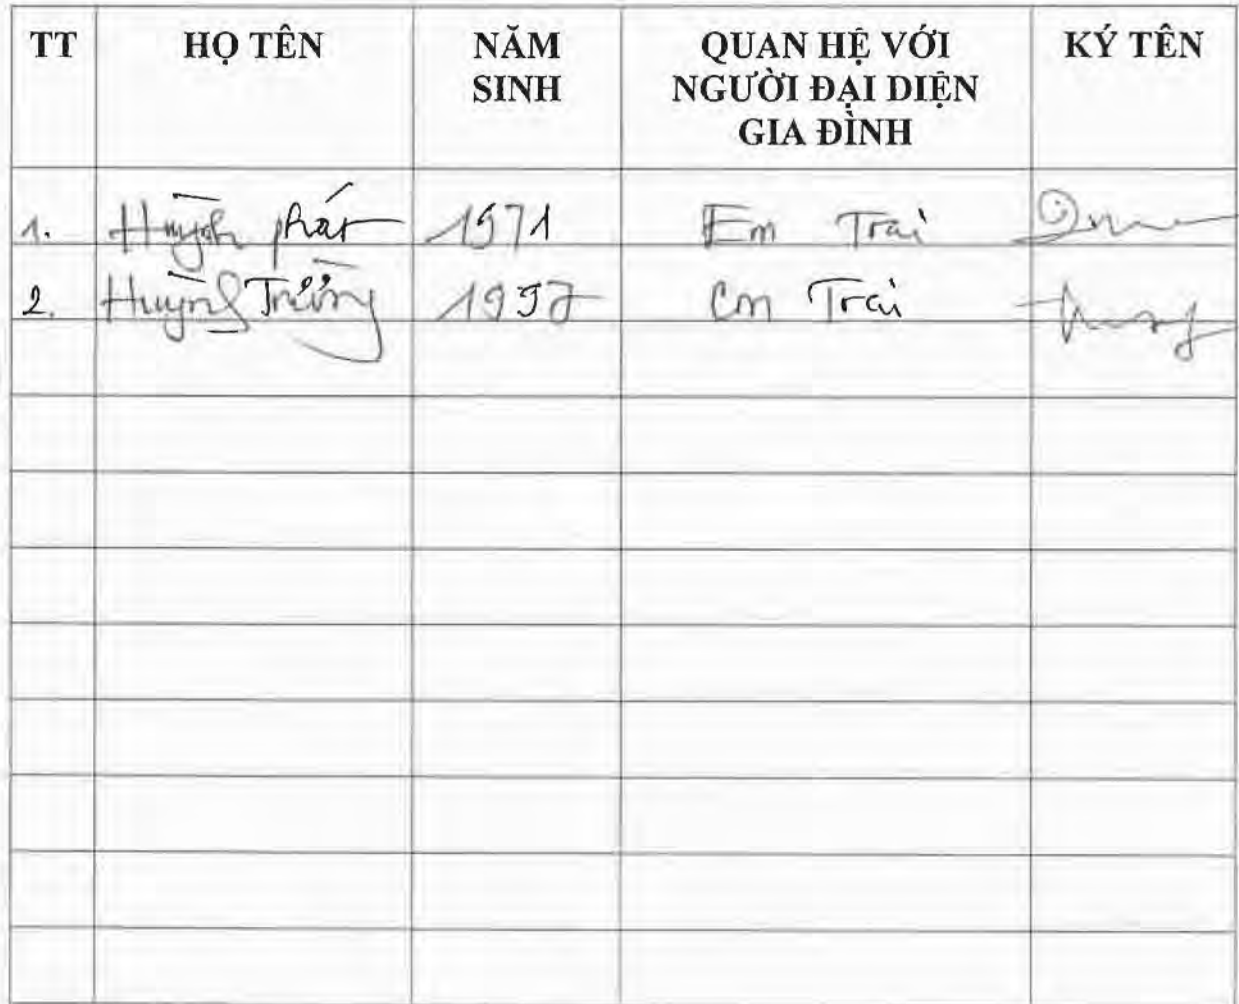 TT HỌ TÊN NĂM SINH QUAN HỆ VỚI NGƯỜI ĐẠI DIỆN GIA ĐÌNH KÝ TÊN
1. Huỳnh phát 1971 Em Trai
2. Huỳnh Trường 1997 Con Trai